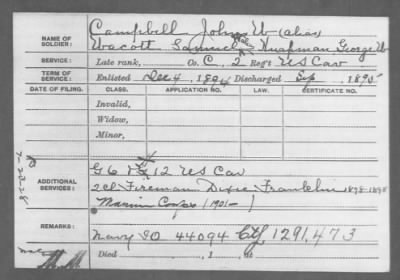 NAME OF SOLDIER: Campbell John W (alias)
Wacott Samuel Knapman George W
SERVICE: Late rank, Co. C, 2 Reg't US Cav
TERM OF SERVICE: Enlisted Dec 4, 1894 Discharged Sep , 1895
DATE OF FILING. CLASS. APPLICATION NO. LAW. CERTIFICATE NO.
Invalid,
Widow,
Minor,
ADDITIONAL SERVICES: G 6 & 12 US Cav
2 Cl Fireman Dixie Franklin 1898-1898
Marine Corps (1901- )
REMARKS:
Navy SO 44094 Ctf 1,291,473
Died , 1 , at